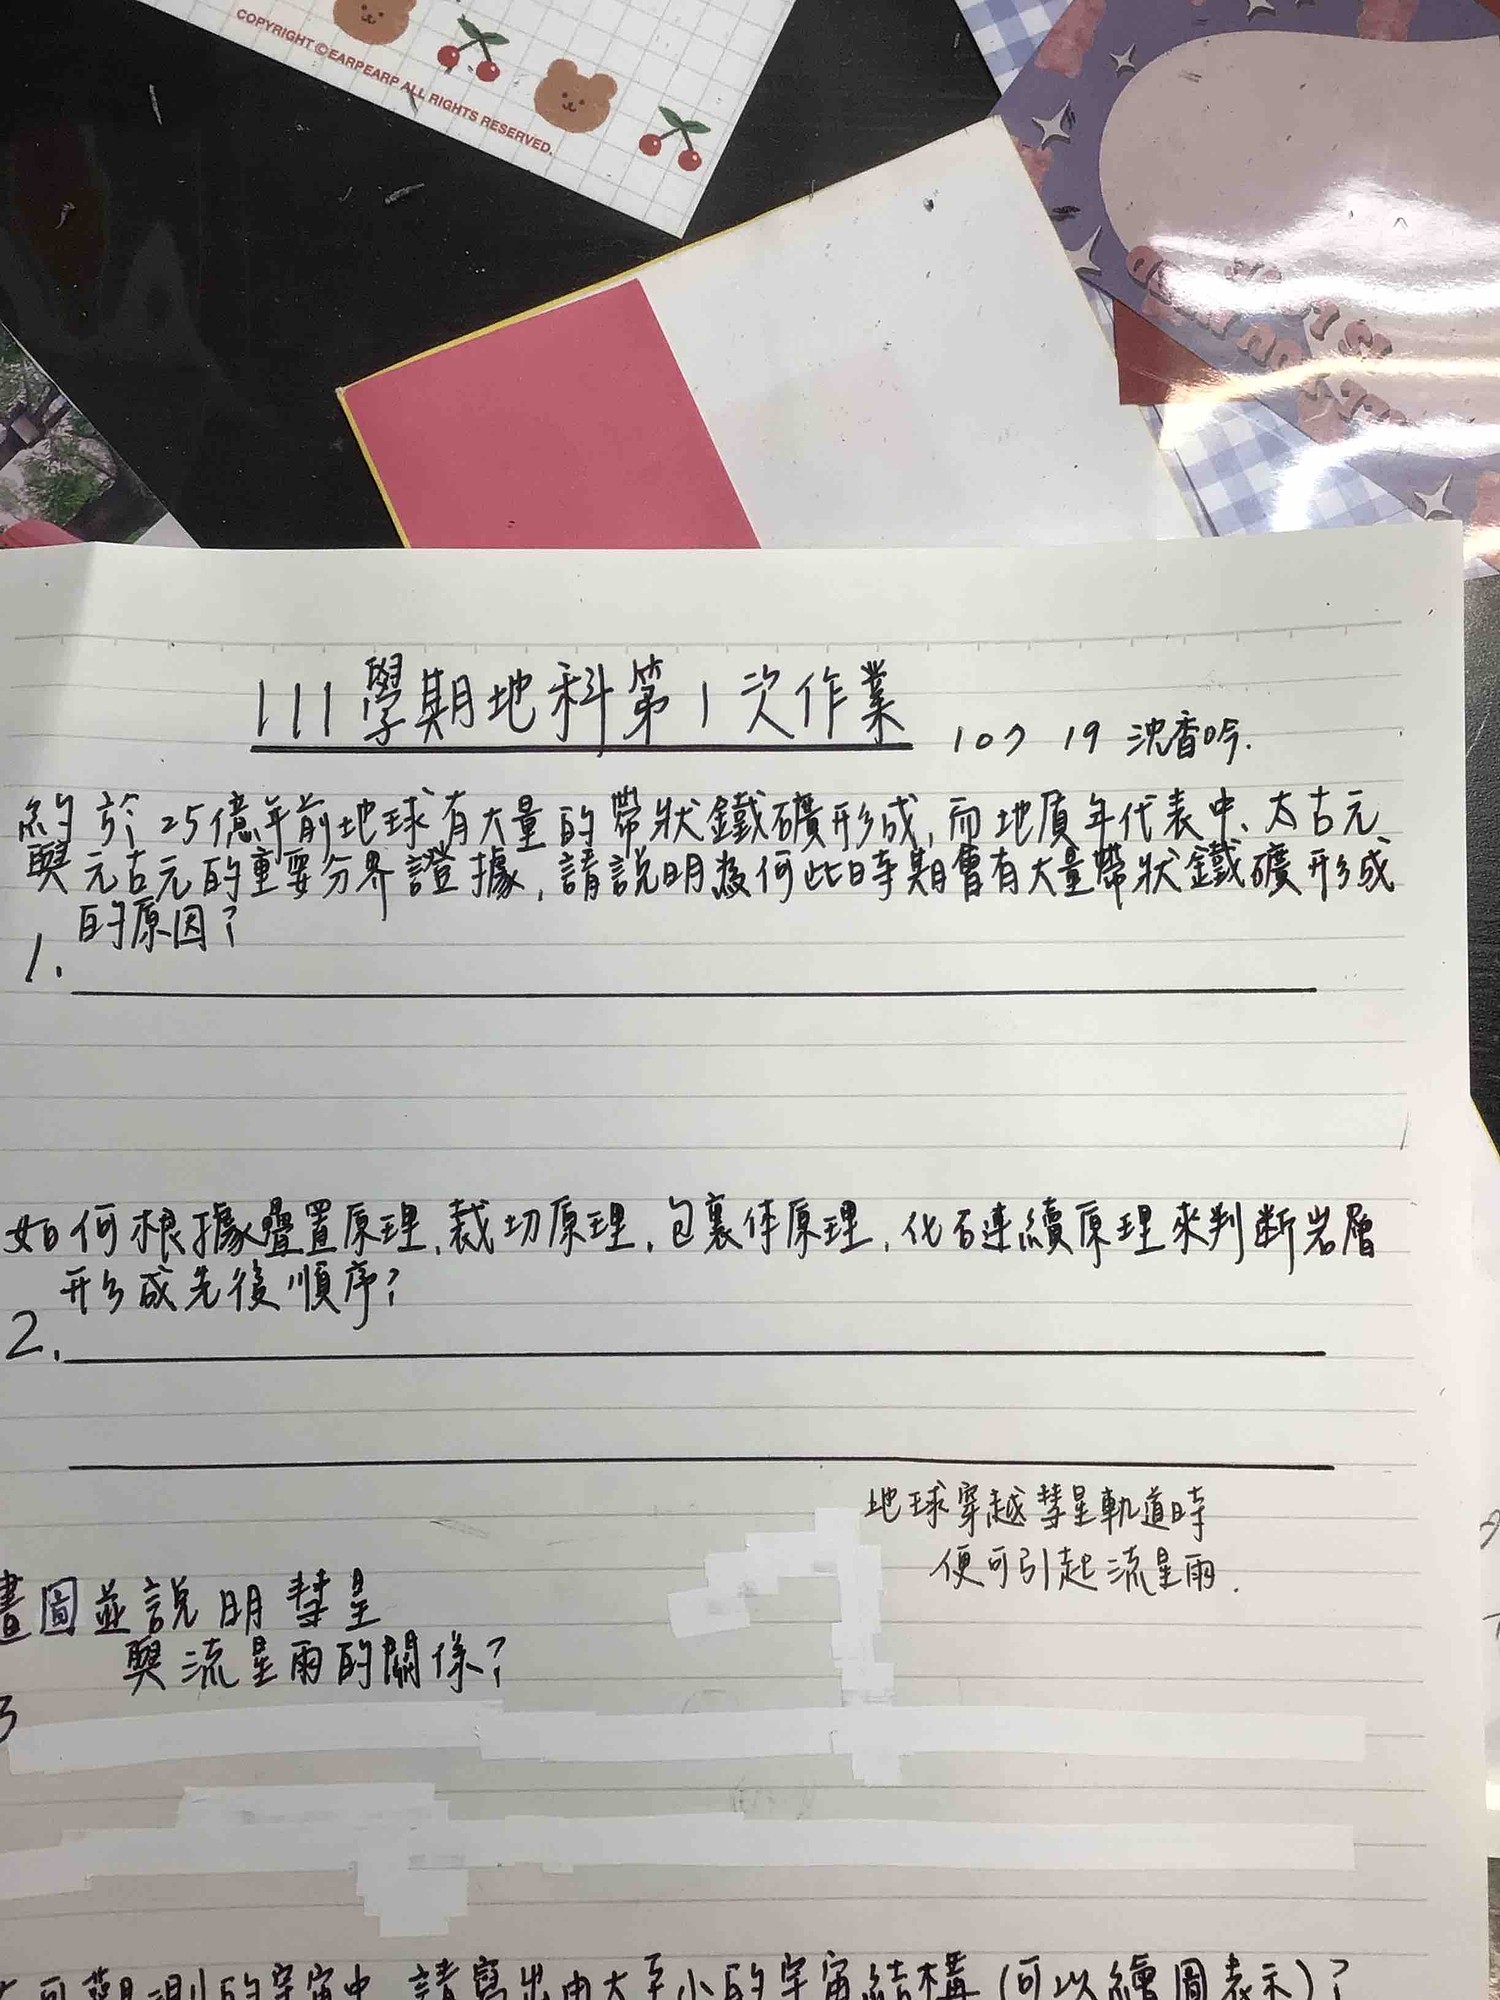 COPYRIGHT ©EARPEARP ALL RIGHTS RESERVED.
111學期地科第1次作業 107 19 沈香吟.
約於25億年前地球有大量的帶狀鐵礦形成,而地質年代表中、太古元
與元古元的重要分界證據,請說明為何此時期會有大量帶狀鐵礦形成
的原因?
1.
如何根據疊置原理、裁切原理、包裹体原理、化石連續原理來判斷岩層
形成先後順序?
2.
地球穿越彗星軌道時
便可引起流星雨.
畫圖並說明彗星
與流星雨的關係?
3
可觀測的宇宙中 請寫出由大至小的宇宙結構(可以繪圖表示)?